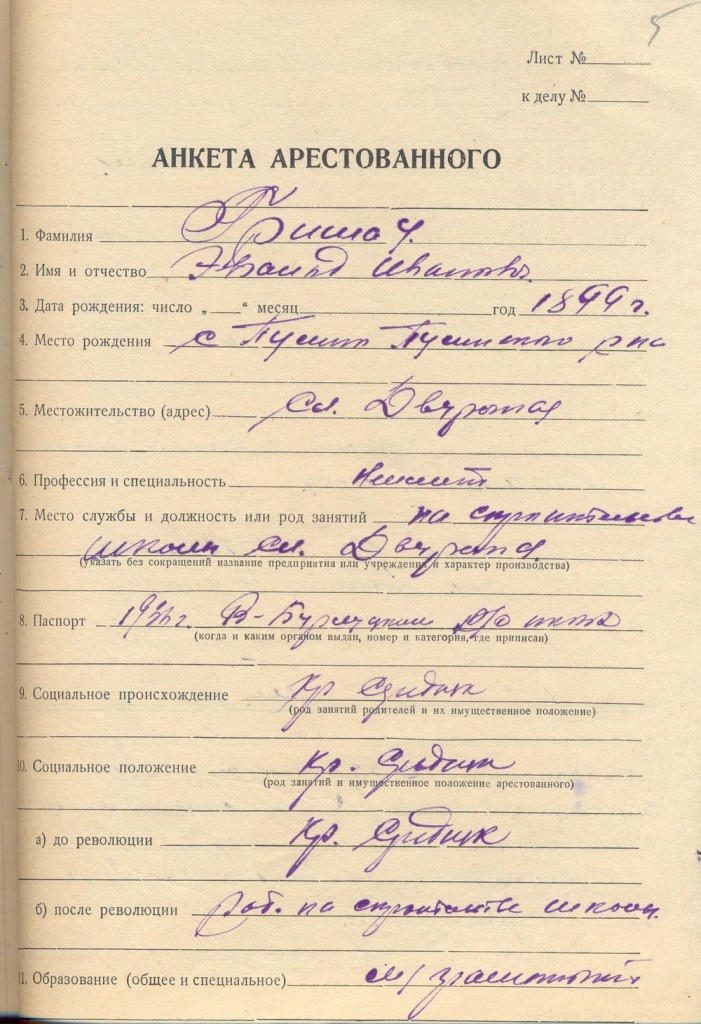 5
Лист №
к делу №
АНКЕТА АРЕСТОВАННОГО
1. Фамилия
2. Имя и отчество Иванович
3. Дата рождения: число „ “ месяц год 1899 г.
4. Место рождения с
5. Местожительство (адрес) Сл. Двуротая
6. Профессия и специальность
7. Место службы и должность или род занятий на строительстве
школы сл. Двуротая.
(указать без сокращений название предприятия или учреждения и характер производства)
8. Паспорт 1936 г.
(когда и каким органом выдан, номер и категория, где приписан)
9. Социальное происхождение Кр. Середняк
(род занятий родителей и их имущественное положение)
10. Социальное положение Кр. Середняк
(род занятий и имущественное положение арестованного)
а) до революции Кр. Середняк
б) после революции раб. на строительстве школы.
11. Образование (общее и специальное) м/грамотный